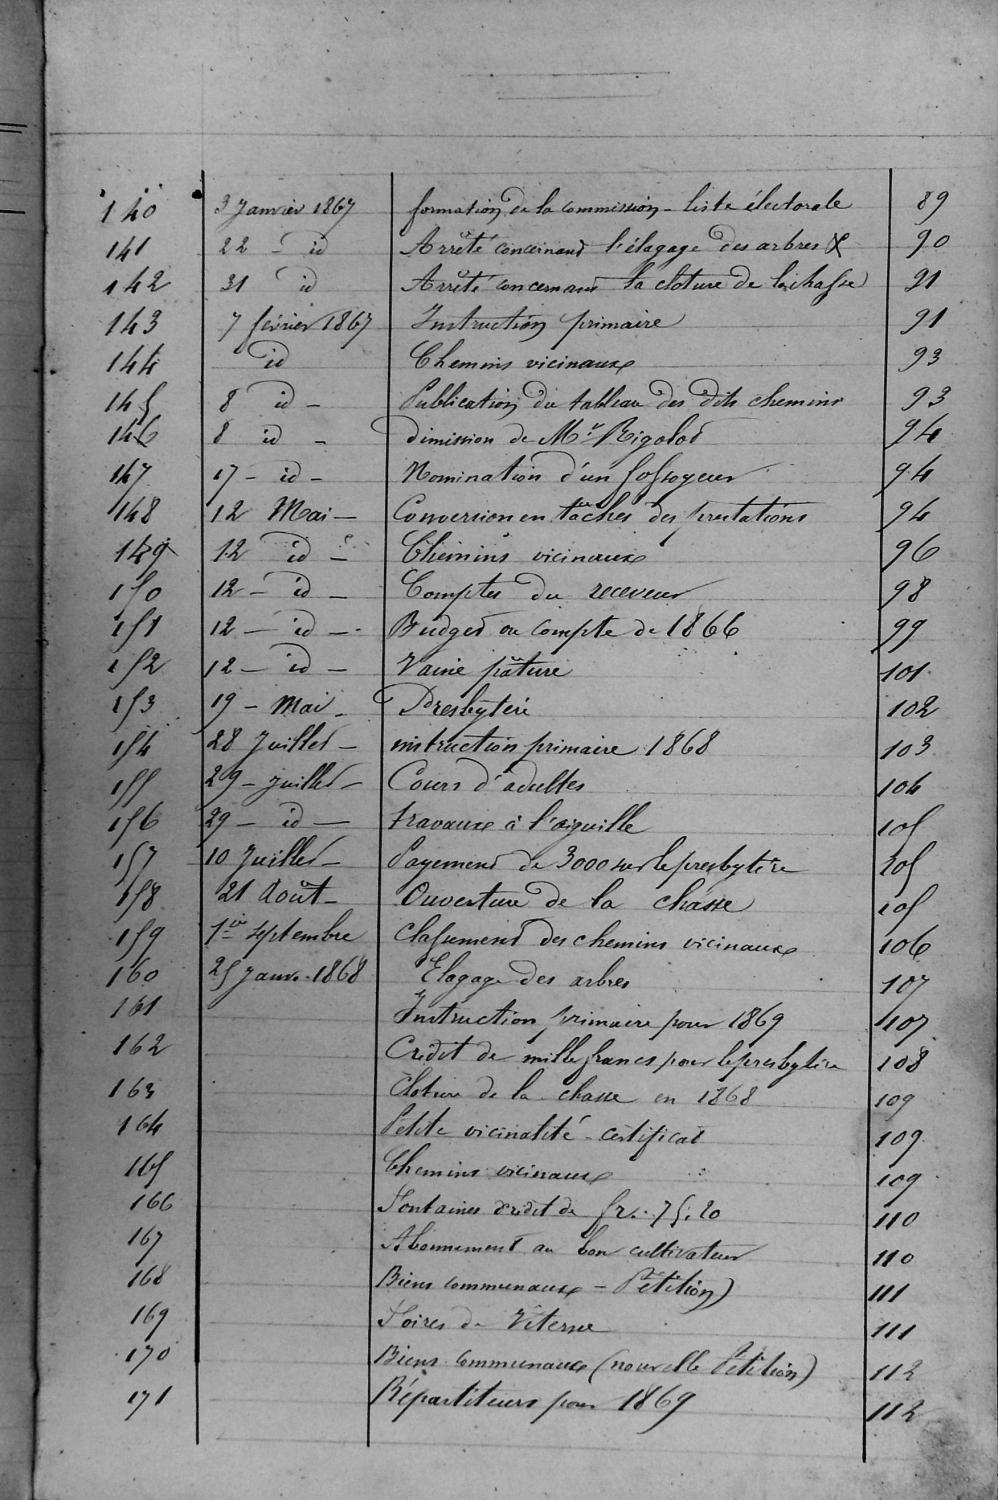 140 3 Janvier 1867 formation de la commission - liste électorale 89
141 22 - id Arrêté concernant l'élagage des arbres & 90
142 31 id Arrêté concernant la cloture de la chasse 91
143 7 février 1867 Instruction primaire 91
144 id Chemins vicinaux 93
145 8 id - Publication du tableau des dits chemins 93
146 8 id - dimission de Mr Rigolot 94
147 17 - id - Nomination d'un fossoyeur 94
148 12 Mai - Conversion en tâches des prestations 94
149 12 id - Chemins vicinaux 96
150 12 - id - Comptes du receveur 98
151 12 - id - Budget ou compte de 1866 99
152 12 - id - Vaine pâture 101
153 19 - Mai - Presbytère 102
154 28 Juillet - instruction primaire 1868 103
155 29 - juillet - Cours d'adultes 104
156 29 - id - travaux à l'aiguille 105
157 10 Juillet - Payement de 3000 sur le presbytère 105
158 21 Août - Ouverture de la chasse 105
159 1er septembre Classement des chemins vicinaux 106
160 25 Janv. 1868 Elagage des arbres 107
161 Instruction primaire pour 1869 107
162 Crédit de mille francs pour le presbytère 108
163 Cloture de la chasse en 1868 109
164 Petite vicinalité - certificat 109
165 Chemins vicinaux 109
166 Fontaines crédit de fr. 75.20 110
167 Abonnement au bon cultivateur 110
168 Biens communaux - Pétition) 111
169 Foires de Viterne 111
170 Biens communaux (nouvelle Pétition) 112
171 Répartiteurs pour 1869 112